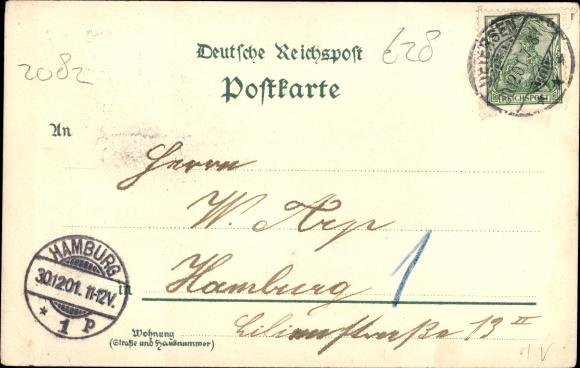 Deutsche Reichspost
628
2082
Postkarte
REICHSPOST
An
Herrn
W. Arp
1
HAMBURG
30.12.01. 11-12V.
* 1 P
in Hamburg
Lilienstraße 13 II
Wohnung
(Straße und Hausnummer)